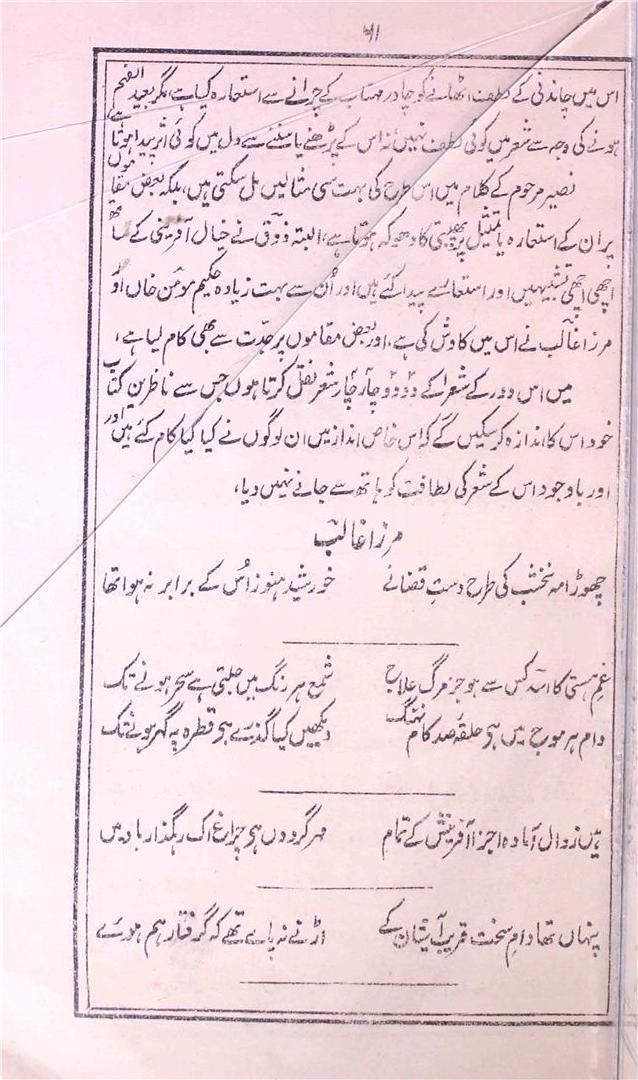 ۷۱
اس میں چاندنی کے لطف اٹھانے کو چادر مہتاب کے چرانے سے استعارہ کیا ہے، مگر بعید الفہم
ہونے کی وجہ سے شعر میں کوئی لطف نہیں نہ اس کے پڑھنے یا سننے سے دل میں کوئی اثر پیدا ہوتا ہے،
نصیر مرحوم کے کلام میں اس طرح کی بہت سی مثالیں مل سکتی ہیں، بلکہ بعض مقاموں
پر ان کے استعارہ یا تمثیل پر پھبتی کا دھوکہ ہوتا ہے، البتہ ذوق نے خیال آفرینی کے ساتھ
اچھی اچھی تشبیہیں اور استعارے پیدا کئے ہیں اور اُن سے بہت زیادہ حکیم مومن خاں او
مرزا غالب نے اس میں کاوش کی ہے، اور بعض مقاموں پر جدّت سے بھی کام لیا ہے،
میں اس دور کے شعرا کے دو دو چار چار شعر نقل کرتا ہوں جس سے ناظرین کتاب
خود اس کا اندازہ کر سکیں گے کہ اس خاص انداز میں ان لوگوں نے کیا کیا کام کئے ہیں اور
اور باوجود اس کے شعر کی لطافت کو ہاتھ سے جانے نہیں دیا،
مرزا غالب
چھوڑا مہ نخشب کی طرح دست قضا نے خورشید ہنوز اُس کے برابر نہ ہوا تھا
غم ہستی کا اسد کس سے ہو جز مرگ علاج شمع ہر رنگ میں جلتی ہے سحر ہونے تک
دام ہر موج میں ہی حلقۂ صد کام نہنگ دیکھیں کیا گذرے ہی قطرہ پہ گہر ہونے تک
ہیں زوال آمادہ اجزا آفرینش کے تمام مہر گردوں ہی چراغ اک رہگذار باد میں
پنہاں تھا دام سخت قریب آشیان کے اڑنے نہ پائے تھے کہ گرفتار ہم ہوئے